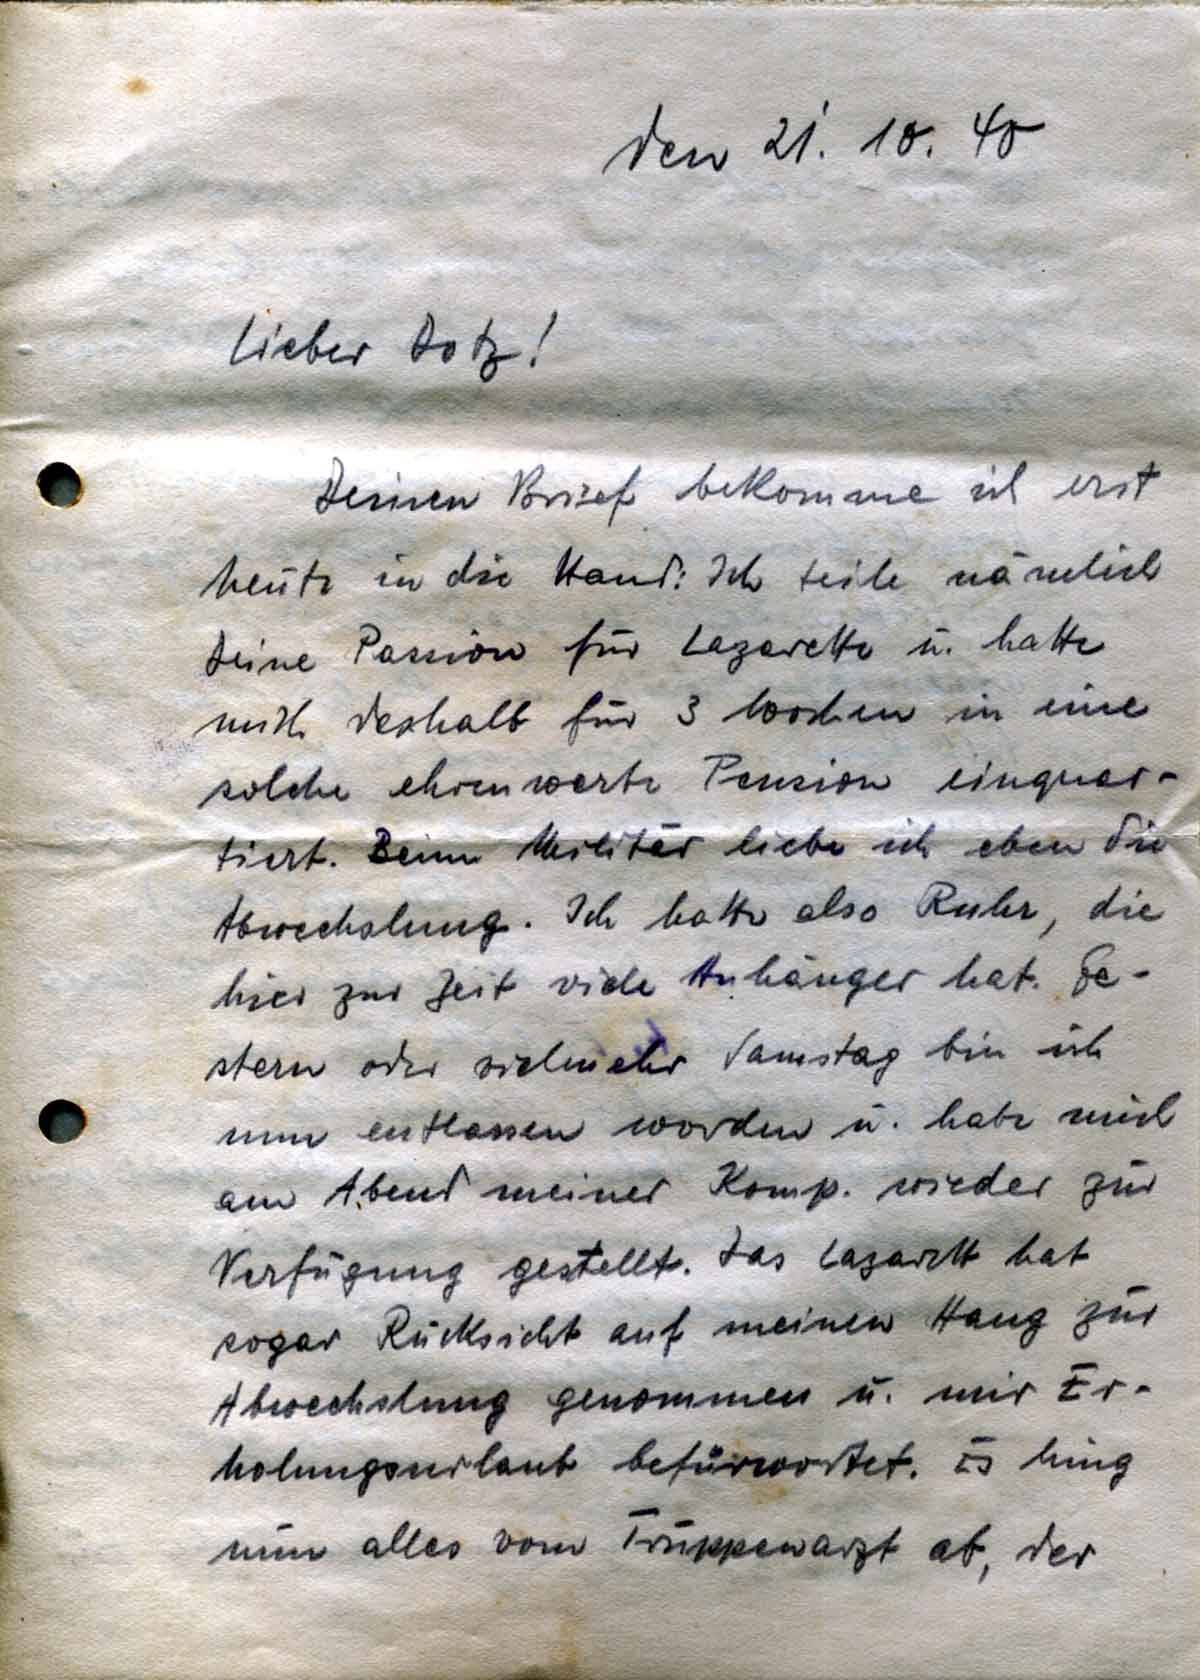 den 21. 10. 40
Lieber Dotz!
Deinen Brief bekomme ich erst
heute in die Hand: Ich teile nämlich
Deine Passion für Lazarette u. hatte
mich deshalb für 3 Wochen in eine
solche ehrenwerte Pension einquar-
tiert. Beim Militär liebe ich eben die
Abwechslung. Ich hatte also Ruhr, die
hier zur Zeit viele Anhänger hat. Ge-
stern oder vielmehr Samstag bin ich
nun entlassen worden u. habe mich
am Abend meiner Komp. wieder zur
Verfügung gestellt. Das Lazarett hat
sogar Rücksicht auf meinen Hang zur
Abwechslung genommen u. mir Er-
holungsurlaub befürwortet. Es hing
nun alles vom Truppenarzt ab, der